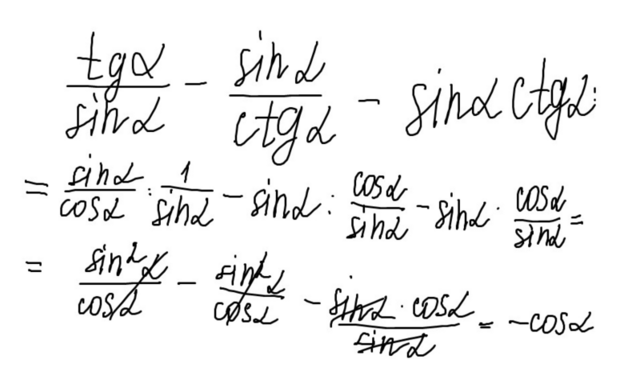 tgα/sinα − sinα/ctgα − sinα ctgα =
= sinα/cosα : 1/sinα − sinα : cosα/sinα − sinα · cosα/sinα =
= sin²α/cosα − sin²α/cosα − sinα · cosα/sinα = −cosα